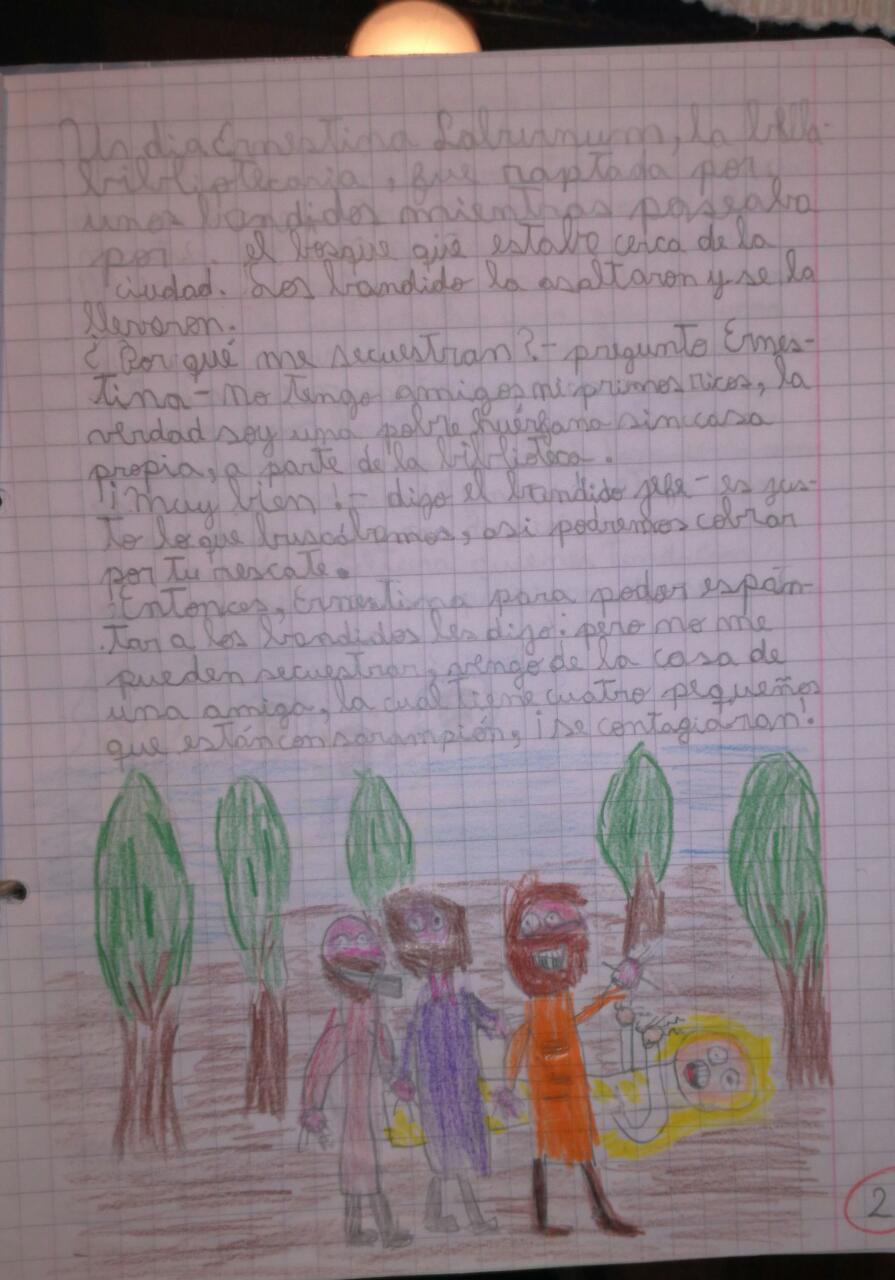 Un dia Ernestina Laburnum, la bella
bibliotecaria, fue raptada por
unos bandidos mientras paseaba
por el bosque que estaba cerca de la
ciudad. Los bandido la asaltaron y se la
llevaron.
¿Por qué me secuestran?- pregunto Ernes-
tina- no tengo amigos ni primos ricos, la
verdad soy una pobre huérfana sin casa
propia, a parte de la biblioteca.
¡Muy bien!- digo el bandido jefe- es jus-
to lo que buscábamos, asi podremos cobrar
por tu rescate.
Entonces, Ernestina para poder espán-
tar a los bandidos les dijo: pero no me
pueden secuestrar, vengo de la casa de
una amiga, la cual tiene cuatro pequeños
que están con sarampión, ¡se contagiaran!
2